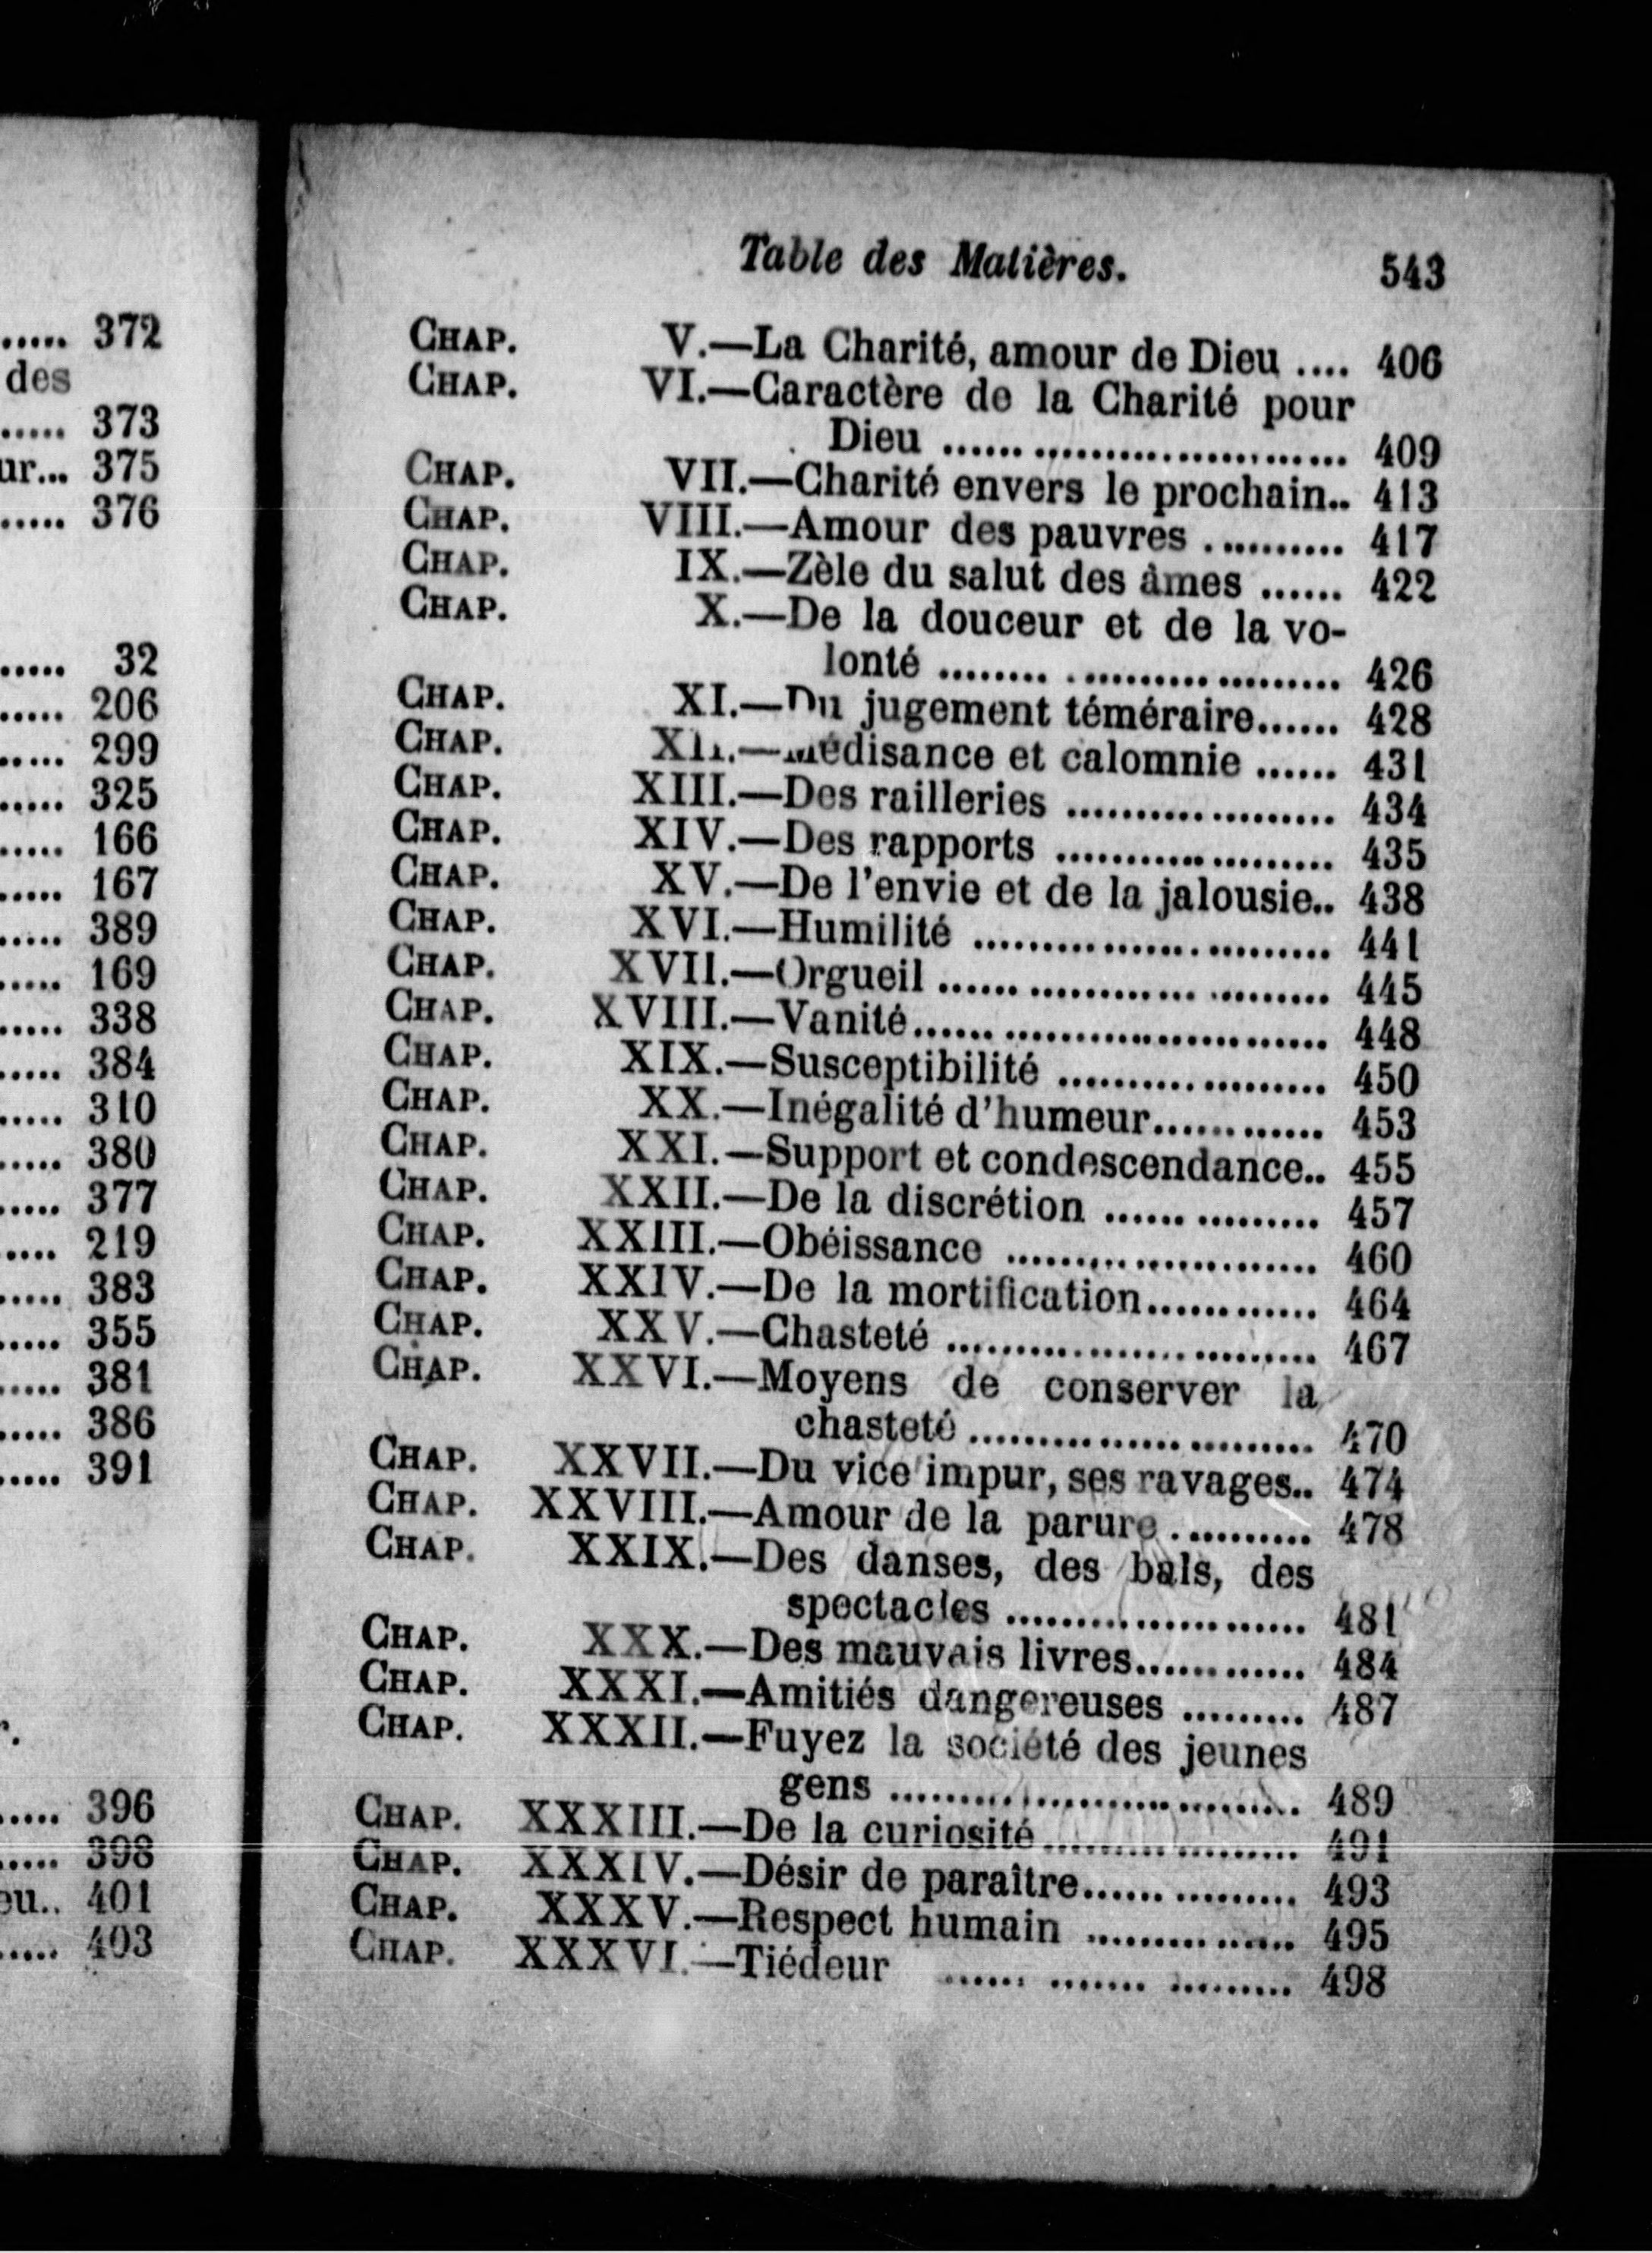 ..... 372
des
..... 373
ur... 375
..... 376
..... 32
..... 206
..... 299
..... 325
..... 166
..... 167
..... 389
..... 169
..... 338
..... 384
..... 310
..... 380
..... 377
..... 219
..... 383
..... 355
..... 381
..... 386
..... 391
r.
..... 396
..... 398
eu.. 401
..... 403
Table des Matières. 543
CHAP. V.—La Charité, amour de Dieu .... 406
CHAP. VI.—Caractère de la Charité pour
Dieu ............................ 409
CHAP. VII.—Charité envers le prochain.. 413
CHAP. VIII.—Amour des pauvres ........... 417
CHAP. IX.—Zèle du salut des âmes ...... 422
CHAP. X.—De la douceur et de la vo-
lonté ............................ 426
CHAP. XI.—Du jugement téméraire...... 428
CHAP. XII.—Médisance et calomnie ...... 431
CHAP. XIII.—Des railleries ................... 434
CHAP. XIV.—Des rapports .................... 435
CHAP. XV.—De l'envie et de la jalousie.. 438
CHAP. XVI.—Humilité .......................... 441
CHAP. XVII.—Orgueil ............................ 445
CHAP. XVIII.—Vanité............................. 448
CHAP. XIX.—Susceptibilité ................... 450
CHAP. XX.—Inégalité d'humeur............ 453
CHAP. XXI.—Support et condescendance.. 455
CHAP. XXII.—De la discrétion ............... 457
CHAP. XXIII.—Obéissance ...................... 460
CHAP. XXIV.—De la mortification............ 464
CHAP. XXV.—Chasteté .......................... 467
CHAP. XXVI.—Moyens de conserver la
chasteté ......................... 470
CHAP. XXVII.—Du vice impur, ses ravages.. 474
CHAP. XXVIII.—Amour de la parure ........... 478
CHAP. XXIX.—Des danses, des bals, des
spectacles ...................... 481
CHAP. XXX.—Des mauvais livres............ 484
CHAP. XXXI.—Amitiés dangereuses ......... 487
CHAP. XXXII.—Fuyez la société des jeunes
gens .............................. 489
CHAP. XXXIII.—De la curiosité................... 491
CHAP. XXXIV.—Désir de paraître............... 493
CHAP. XXXV.—Respect humain ............... 495
CHAP. XXXVI.—Tiédeur ...... ....... ......... 498